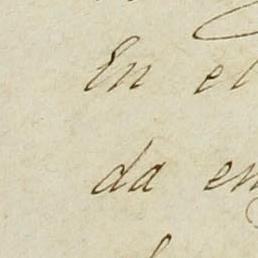 En el
da en